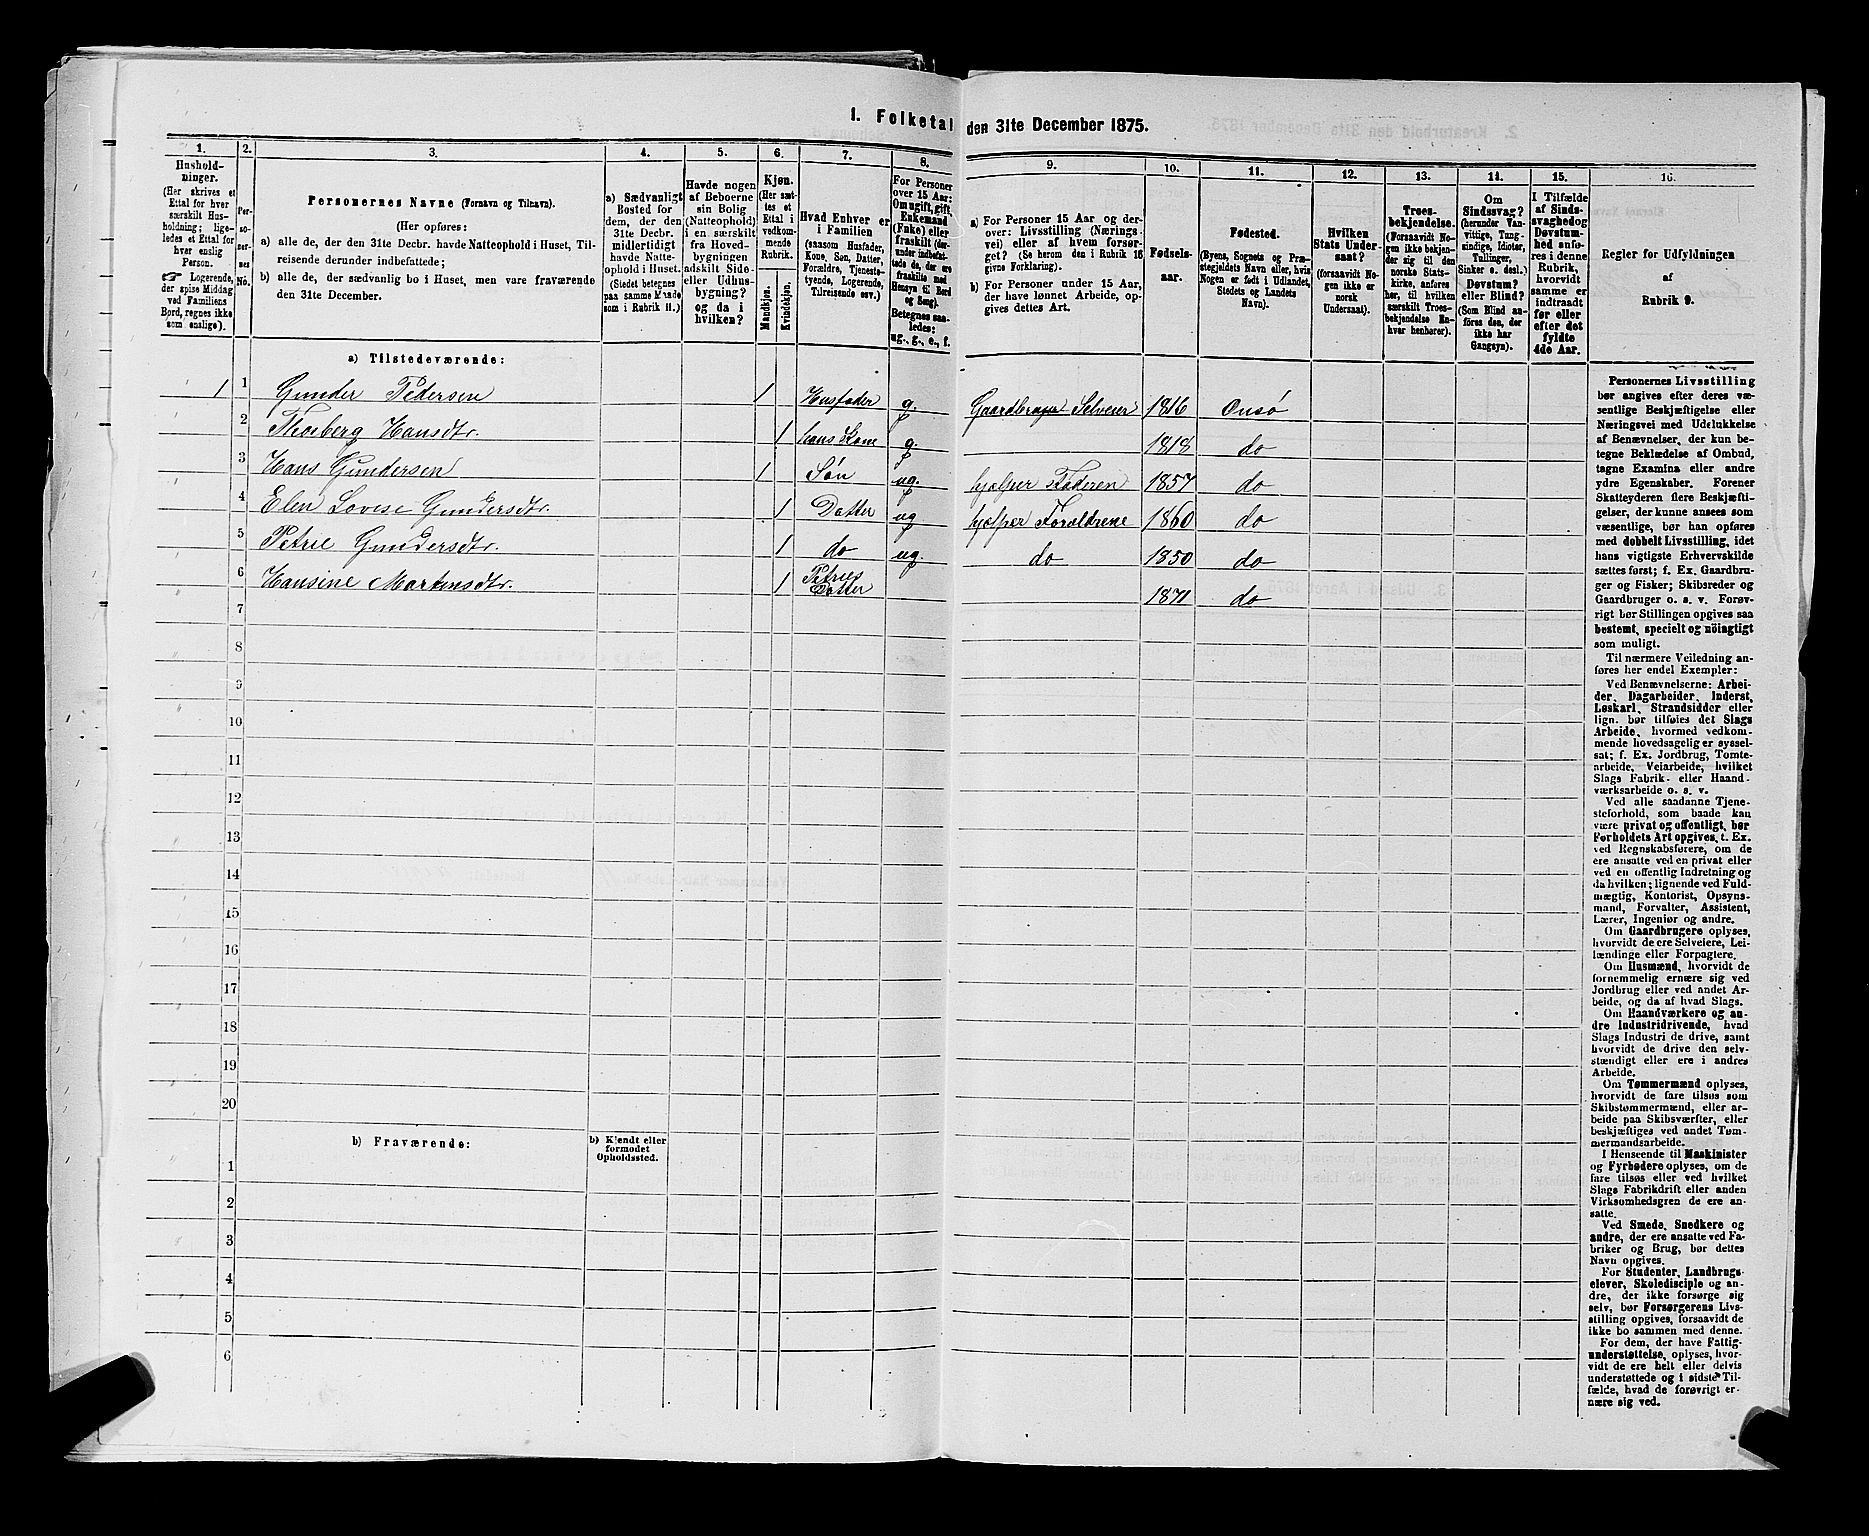 1. Folketal den 31te December 1875.
1. 2. 3. 4. 5. 6. 7. 8. 9. 10. 11. 12. 13. 14. 15. 16.
Hushold-
ninger.
(Her skrives et
Ettal for hver
særskilt Hus-
holdning; lige-
ledes et Ettal for
hver enslig
Person.
☞ Logerende,
der spise Middag
ved Familiens
Bord, regnes ikke
som enslige).
Per-
so-
ner-
nes
No.
Personernes Navne (Fornavn og Tilnavn).
(Her opføres:
a) alle de, der den 31te Decbr. havde Natteophold i Huset, Til-
reisende derunder indbefattede;
b) alle de, der sædvanlig bo i Huset, men vare fraværende
den 31te December.
a) Sædvanligt
Bosted for
dem, der den
31te Decbr.
midlertidigt
havde Natte-
ophold i Huset.
(Stedet betegnes
paa samme Maade
som i Rubrik 11.)
Havde nogen
af Beboerne
sin Bolig
(Natteophold)
i en særskilt
fra Hoved-
bygningen
adskilt Side-
eller Udhus-
bygning?
og da i
hvilken?
Kjøn.
(Her sæt-
tes et
Ettal i
vedkom-
mende
Rubrik.
Mandkjøn.
Kvindekjøn.
Hvad Enhver er
i Familien
(saasom Husfader,
Kone, Søn, Datter,
Forældre, Tjeneste-
tyende, Logerende,
Tilreisende osv.)
For Personer
over 15 Aar:
Om ugift, gift,
Enkemand
(Enke) eller
fraskilt (der-
under indbefat-
tede de, der ere
fraskilte med
Hensyn til Bord
og Seng).
Betegnes saa-
ledes:
ug., g., e., f.
a) For Personer 15 Aar og der-
over: Livsstilling (Nærings-
vei) eller af hvem forsør-
get? (Se herom den i Rubrik 16
givne Forklaring).
b) For Personer under 15 Aar,
der have lønnet Arbeide, op-
gives dettes Art.
Fødsels-
aar.
Fødested.
(Byens, Sognets og Præ-
stegjeldets Navn eller, hvis
Nogen er født i Udlandet,
Stedets og Landets
Navn).
Hvilken
Stats Under-
saat?
(forsaavidt No-
gen ikke er
norsk
Undersaat).
Troes-
bekjendelse.
(Forsaavidt No-
gen ikke bekjen-
der sig til den
norske Stats-
kirke, anføres
her, til hvilken
særskilt Troes-
bekjendelse En-
hver henhører).
Om
Sindssvag?
(herunder Van-
vittige, Tung-
sindige, Idioter,
Tullinger,
Sinker o. desl.)
Døvstum?
eller Blind?
(Som Blind an-
føres den, der
ikke har
Gangsyn).
I Tilfælde
af Sinds-
svaghed og
Døvstum-
hed anfø-
res i denne
Rubrik,
hvorvidt
samme er
indtraadt
før eller
efter det
fyldte
4de Aar.
Regler for Udfyldningen
af
Rubrik 9.
a) Tilstedeværende:
1 1 Gunder Pedersen 1 Husfader g. Gaardbruger Selveier 1816 Onsö
2 Thorberg Hansdtr. 1 hans Kone g 1818 do
3 Hans Gundersen 1 Søn ug. hjælper Faderen 1857 do
4 Elen Lovise Gundersdtr. 1 Datter ug hjælper Forældrene 1860 do
5 Petrie Gundersdtr. 1 do ug. do 1850 do
6 Hansine Martinsdtr. 1 Petries Datter 1871 do
7
8
9
10
11
12
13
14
15
16
17
18
19
20
b) Fraværende:
b) Kjendt eller
formodet
Opholdssted.
1
2
3
4
5
6
Personernes Livsstilling
bør angives efter deres væ-
sentlige Beskjæftigelse eller
Næringsvei med Udelukkelse
af Benævnelser, der kun be-
tegne Beklædelse af Ombud,
tagne Examina eller andre
ydre Egenskaber. Forener
Skatteyderen flere Beskjæfti-
gelser, der kunne ansees som
væsentlige, bør han opføres
med dobbelt Livsstilling, idet
hans vigtigste Erhvervskilde
sættes først; f. Ex. Gaardbru-
ger og Fisker; Skibsreder og
Gaardbruger o. s. v. Forøv-
rigt bør Stillingen opgives saa
bestemt, specielt og nöiagtigt
som muligt.
Til nærmere Veiledning an-
føres her endel Exempler:
Ved Benævnelserne: Arbei-
der, Dagarbeider, Inderst,
Løskarl, Strandsidder eller
lign. bør tilføies det Slags
Arbeide, hvormed vedkom-
mende hovedsagelig er syssel-
sat; f. Ex. Jordbrug, Tomte-
arbeide, Veiarbeide, hvilket
Slags Fabrik- eller Haand-
værksarbeide o. s. v.
Ved alle saadanne Tjene-
steforhold, som baade kan
være privat og offentligt, bør
Forholdets Art opgives, t. Ex.
ved Regnskabsførere, om de
ere ansatte ved en privat eller
ved en offentlig Indretning og
da hvilken; lignende ved Fuld-
mægtig, Kontorist, Opsyns-
mand, Forvalter, Assistent,
Lærer, Ingeniør og andre.
Om Gaardbrugere oplyses,
hvorvidt de ere Selveiere, Lei-
lændinge eller Forpagtere.
Om Husmænd, hvorvidt de
fornemmelig ernære sig ved
Jordbrug eller ved andet Ar-
beide, og da af hvad Slags.
Om Haandværkere og an-
dre Industridrivende, hvad
Slags Industri de drive, samt
hvorvidt de drive den selv-
stændigt eller ere i andres
Arbeide.
Om Tømmermænd oplyses,
hvorvidt de fare tilsøs som
Skibstømmermænd, eller ar-
beide paa Skibsværfter, eller
beskjæftiges ved andet Tøm-
mermandsarbeide.
I Henseende til Maskinister
og Fyrbødere oplyses, om de
fare tilsøs eller ved hvilket
Slags Fabrikdrift eller anden
Virksomhedsgren de ere an-
satte.
Ved Smede, Snedkere og
andre, der ere ansatte ved Fa-
briker og Brug, bør dettes
Navn opgives.
For Studenter, Landbrugs-
elever, Skoledisciple og an-
dre, der ikke forsørge sig
selv, bør Forsørgerens Livs-
stilling opgives, forsaavidt de
ikke bo sammen med denne.
For dem, der have Fattig-
understøttelse, oplyses, hvor-
vidt de ere helt eller delvis
understøttede og i sidste Til-
fælde, hvad de forøvrigt er-
nære sig ved.